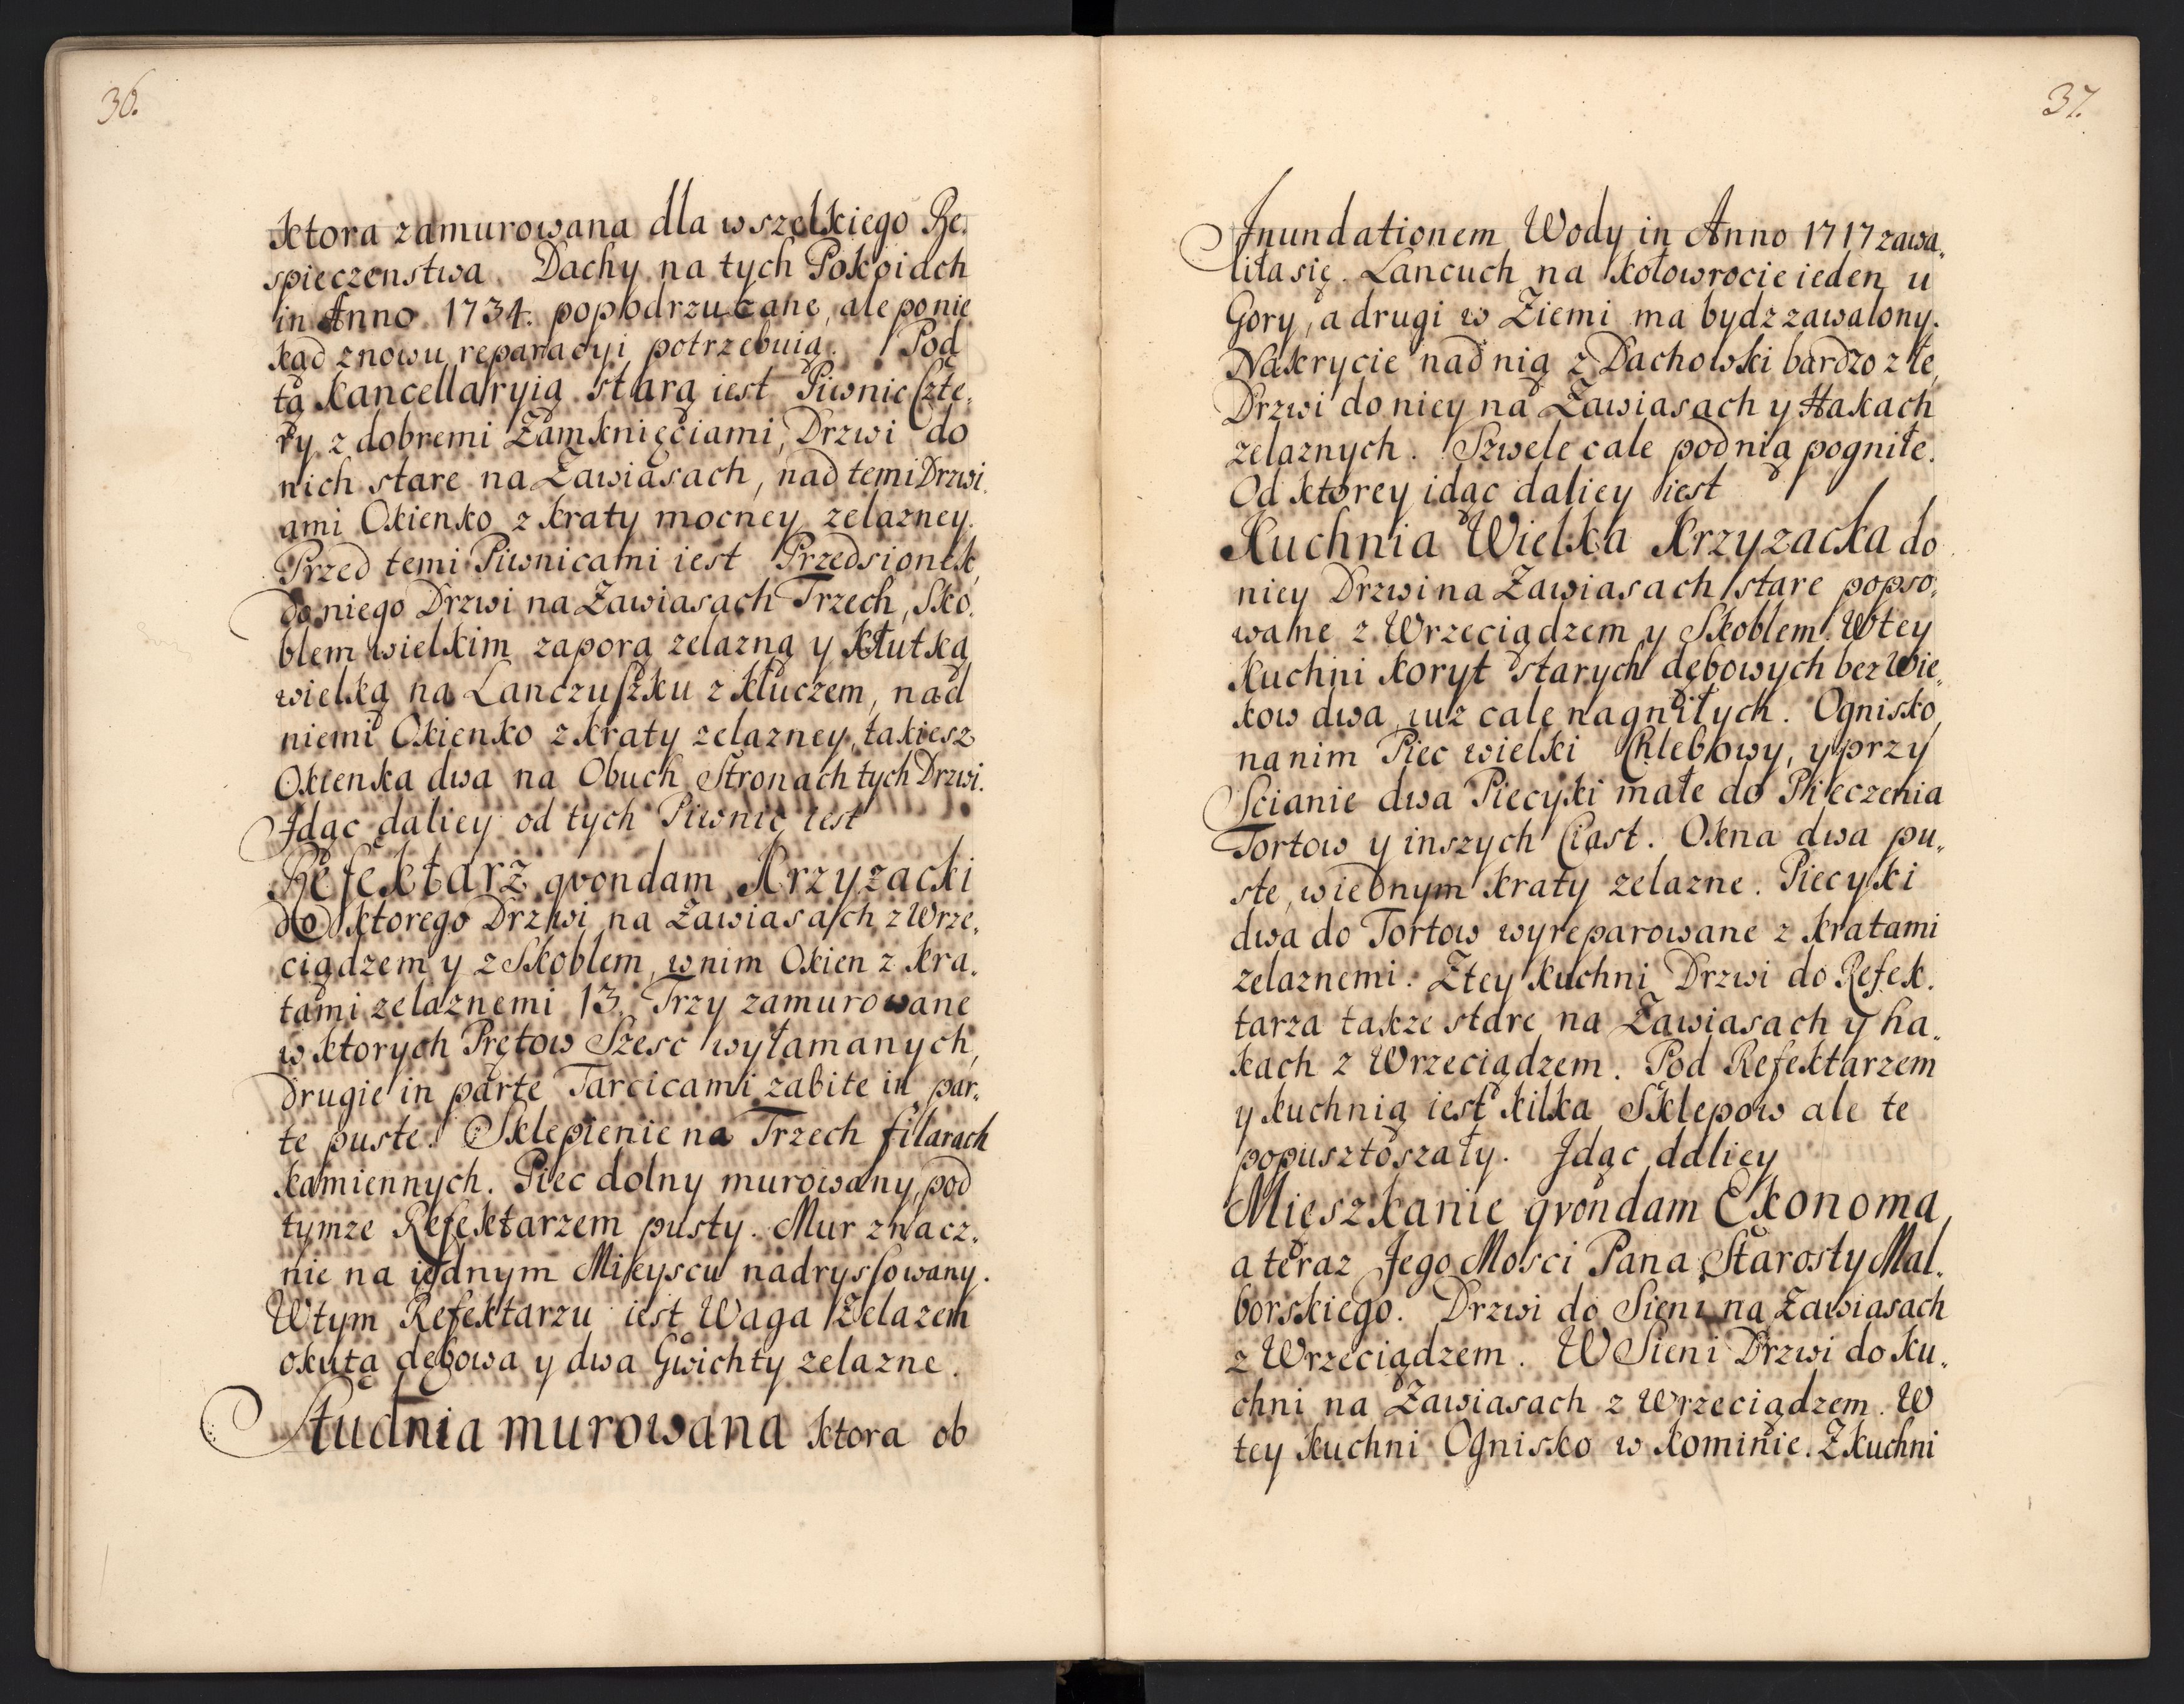 36.
ktora zamurowana dla wszelkiego Be.
spieczenstwa. Dachy na tych Pokoiach
in Anno 1734. popodrzucane, ale ponie
kąd znowu reparacyi potrzebuią. Pod
tą Kancellaryią starą iest Piwnic Czte,
ry z dobremi Zamknięciami, Drzwi do
nich stare na Zawiasach, nad temi Drzwi,
ami Okienko z kraty mocney zelazney.
Przed temi Piwnicami iest Przedsionek,
do niego Drzwi na Zawiasach Trzech, Sko,
blem wielkim zaporą zelazną y kłutką
wielką na Lanczuszku z kluczem, nad
niemi Okienko z kraty zelazney, takiesz
Okienka dwa na Obuch Stronach tych Drzwi.
Idąc daliey od tych Piwnic iest
Refektarz qvondam Krzyzacki
do ktorego Drzwi na Zawiasach z Wrze,
ciądzem y z Skoblem, w nim Okien z kra,
tami zelaznemi 13. Trzy zamurowane
w ktorych Prętow Szesc wyłamanych,
Drugie in parte Tarcicami zabite in par,
te puste. Sklepienie na Trzech filarach
kamiennych. Piec dolny murowany, pod
tymze Refektarzem pusty. Mur znacz,
nie na iednym Mieyscu nadryssowany.
W tym Refektarzu iest Waga Zelazem
okuta dębowa y dwa Gwichty zelazne.
Studnia murowana ktora ob
37.
Inundationem Wody in Anno 1717 zawa,
liła się. Lancuch na kołowrocie ieden u
Gory, a drugi w Ziemi ma bydz zawalony.
Nakrycie nad nią z Dachowski bardzo złe,
Drzwi do niey na Zawiasach y Hakach
zelaznych. Szwele cale pod nią pogniłe.
Od ktorey idąc daliey iest
Kuchnia Wielka Krzyzacka do
niey Drzwi na Zawiasach stare popso,
wane z Wrzeciądzem y Skoblem. W tey
Kuchni koryt starych dębowych bez Wie,
kow dwa, iuz cale nagniłych. Ognisko,
na nim Piec wielki Chlebowy, y przy
Scianie dwa Piecyki małe do Pieczenia
Tortow y inszych Ciast. Okna dwa pu,
ste, w iednym kraty zelazne. Piecyki
dwa do Tortow wyreparowane z kratami
zelaznemi. Z tey kuchni Drzwi do Refek.
tarza takze stare na Zawiasach y ha,
kach z Wrzeciądzem. Pod Refektarzem
y kuchnią iest kilka Sklepow ale te
popusztoszały. Idąc daliey
Mieszkanie qvondam Ekonoma,
a teraz Jego Mosci Pana Starosty Mal,
borskiego. Drzwi do Sieni na Zawiasach
z Wrzeciądzem. W Sieni Drzwi do Ku,
chni na Zawiasach z Wrzeciądzem. W
tey kuchni Ognisko w Kominie. Z kuchni